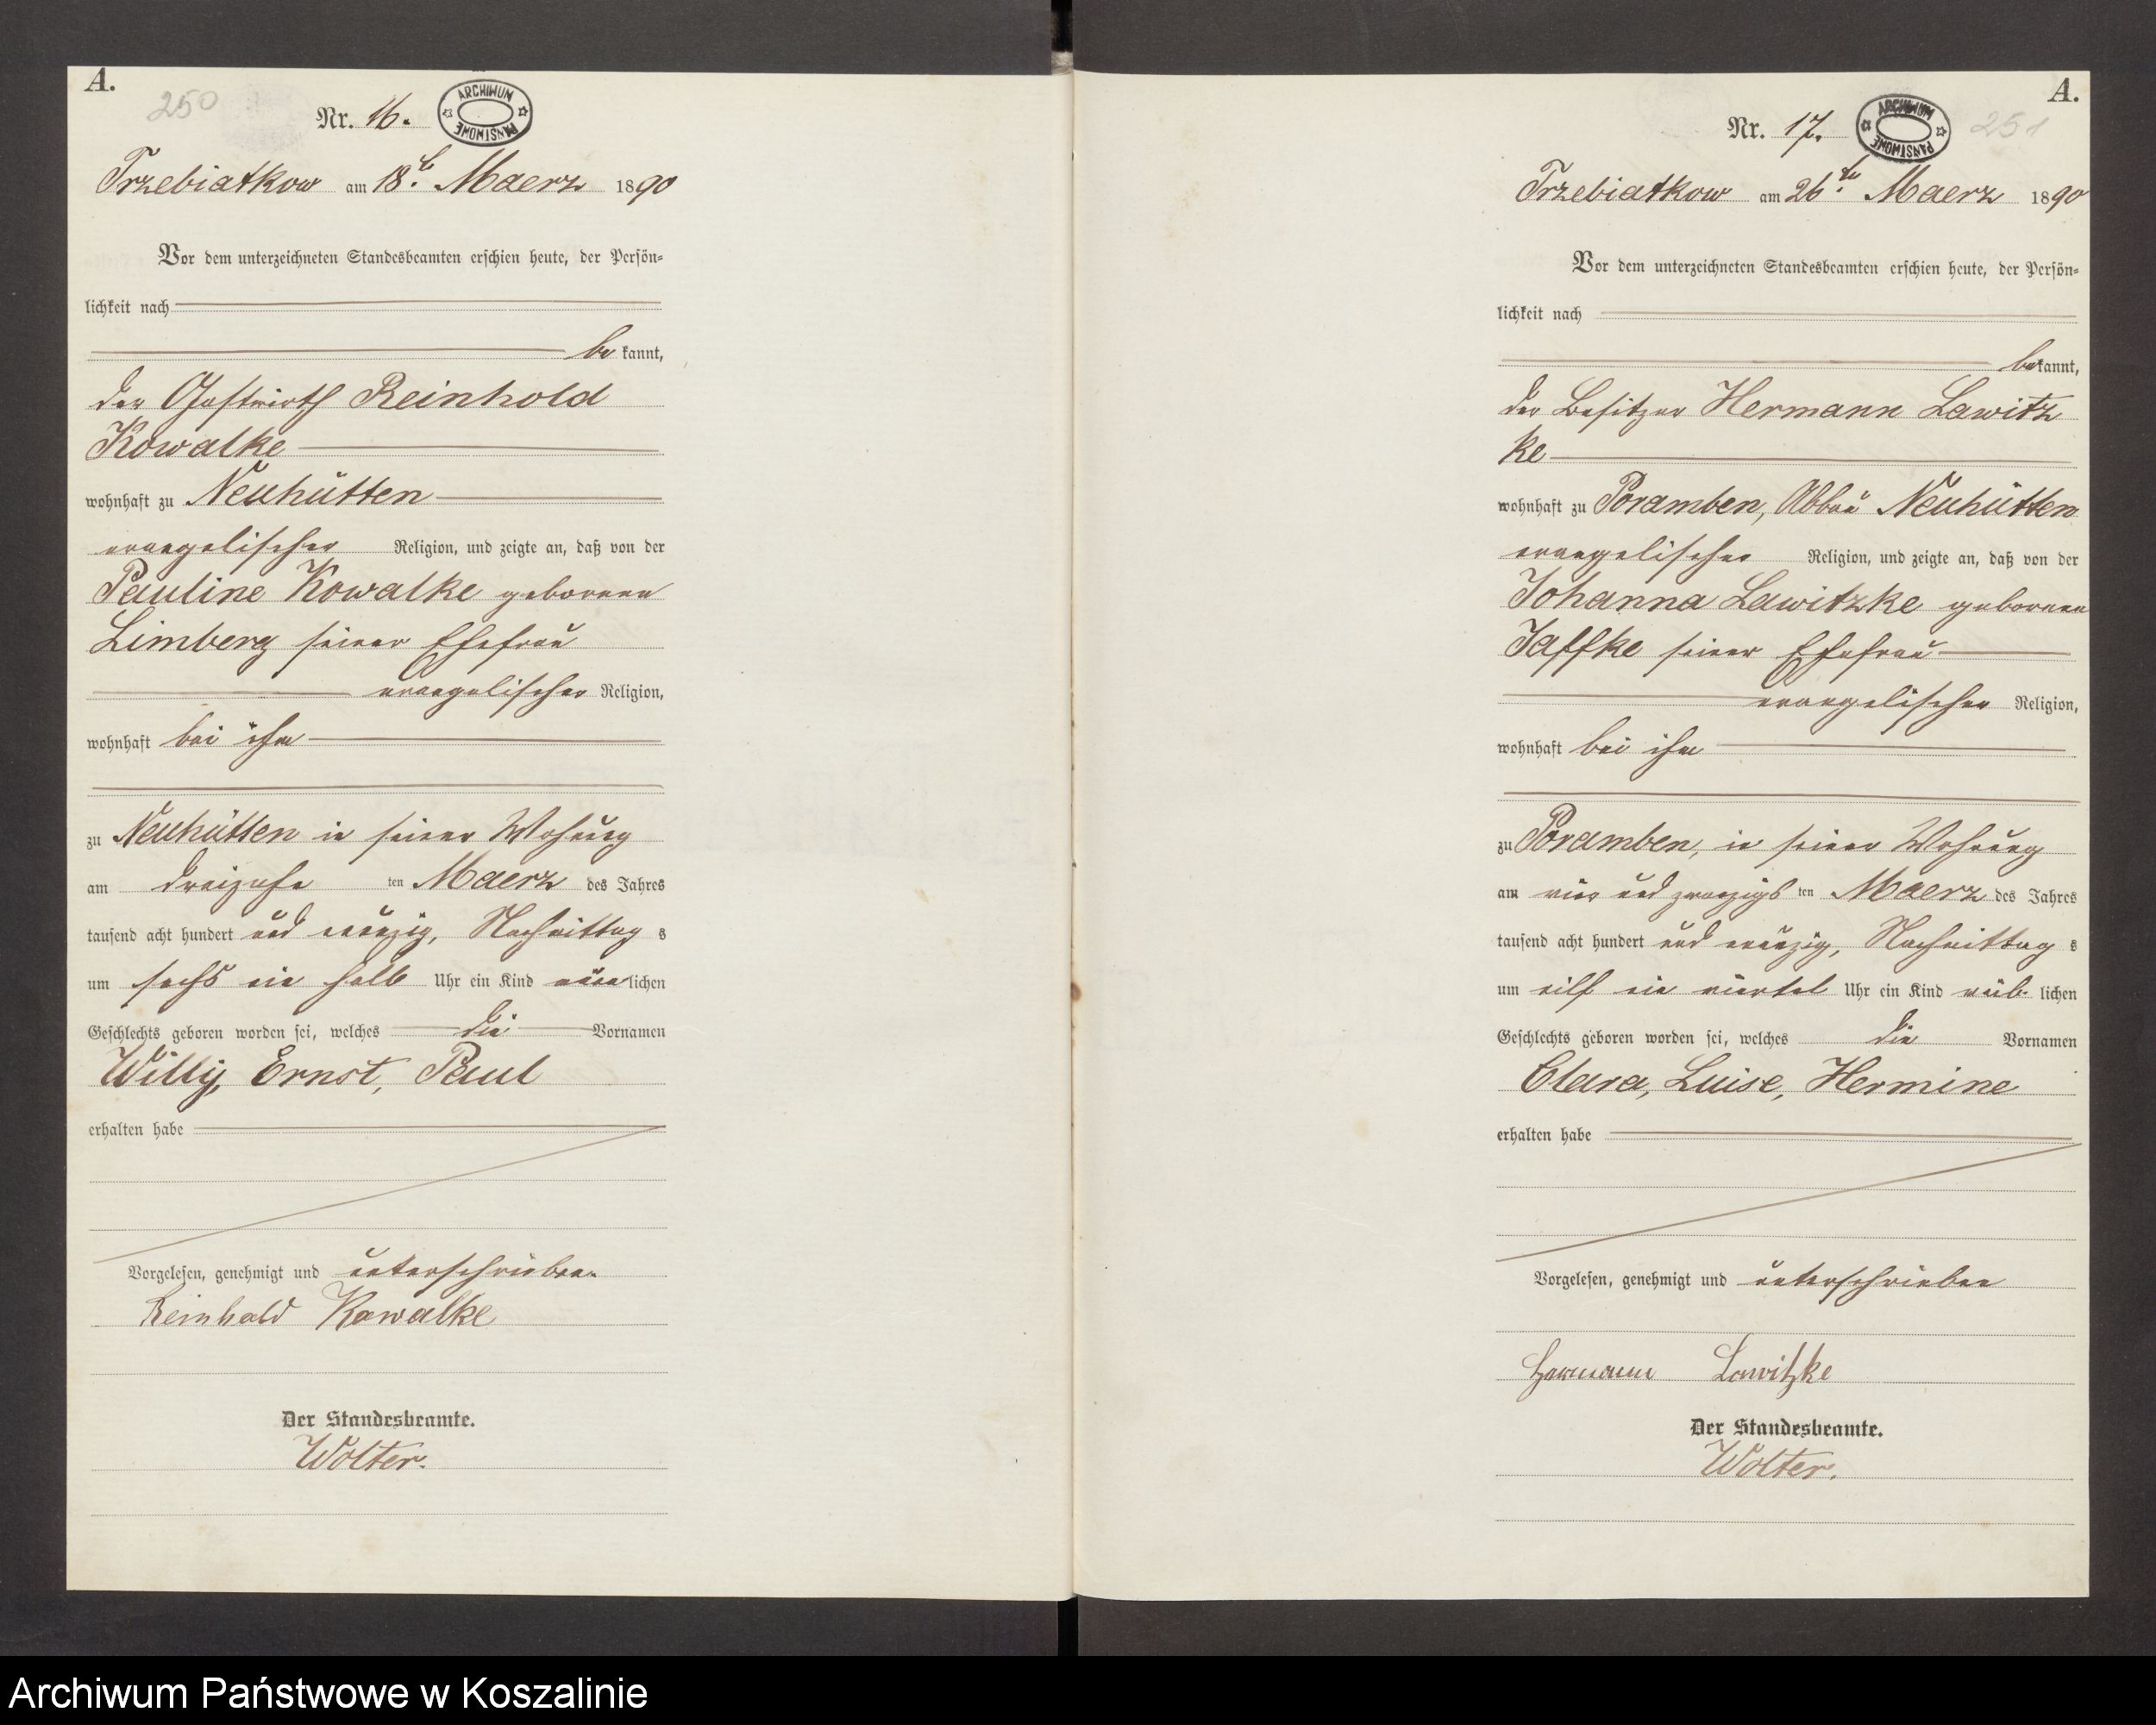 A.
250
Nr. 16.
ARCHIWUM PAŃSTWOWE
Trzebiatkow am 18t. Maerz 1890
Vor dem unterzeichneten Standesbeamten erschien heute, der Persön-
lichkeit nach
be kannt,
der Gastwirth Reinhold
Kowalke
wohnhaft zu Neuhütten
evangelischer Religion, und zeigte an, daß von der
Pauline Kowalke geborenen
Limberg seiner Ehefrau
evangelischer Religion,
wohnhaft bei ihm
zu Neuhütten in seiner Wohnung
am dreizehn ten Maerz des Jahres
tausend acht hundert und neunzig, Nachmittag s
um sechs ein halb Uhr ein Kind männ lichen
Geschlechts geboren worden sei, welches die Vornamen
Willy, Ernst, Paul
erhalten habe
Vorgelesen, genehmigt und unterschrieben.
Reinhold Kowalke
Der Standesbeamte.
Wolter.
A.
Nr. 17.
ARCHIWUM PAŃSTWOWE
251
Trzebiatkow am 26ten Maerz 1890
Vor dem unterzeichneten Standesbeamten erschien heute, der Persön-
lichkeit nach
be kannt,
der Besitzer Hermann Lawitz
ke
wohnhaft zu Poramben, Abbau Neuhütten
evangelischer Religion, und zeigte an, daß von der
Johanna Lawitzke geborenen
Jaffke seiner Ehefrau
evangelischer Religion,
wohnhaft bei ihm
zu Poramben, in seiner Wohnung
am vier und zwanzigs ten Maerz des Jahres
tausend acht hundert und neunzig, Nachmittag s
um eilf ein viertel Uhr ein Kind weib lichen
Geschlechts geboren worden sei, welches die Vornamen
Clara, Luise, Hermine
erhalten habe
Vorgelesen, genehmigt und unterschrieben
Hermann Lawitzke
Der Standesbeamte.
Wolter.
Archiwum Państwowe w Koszalinie